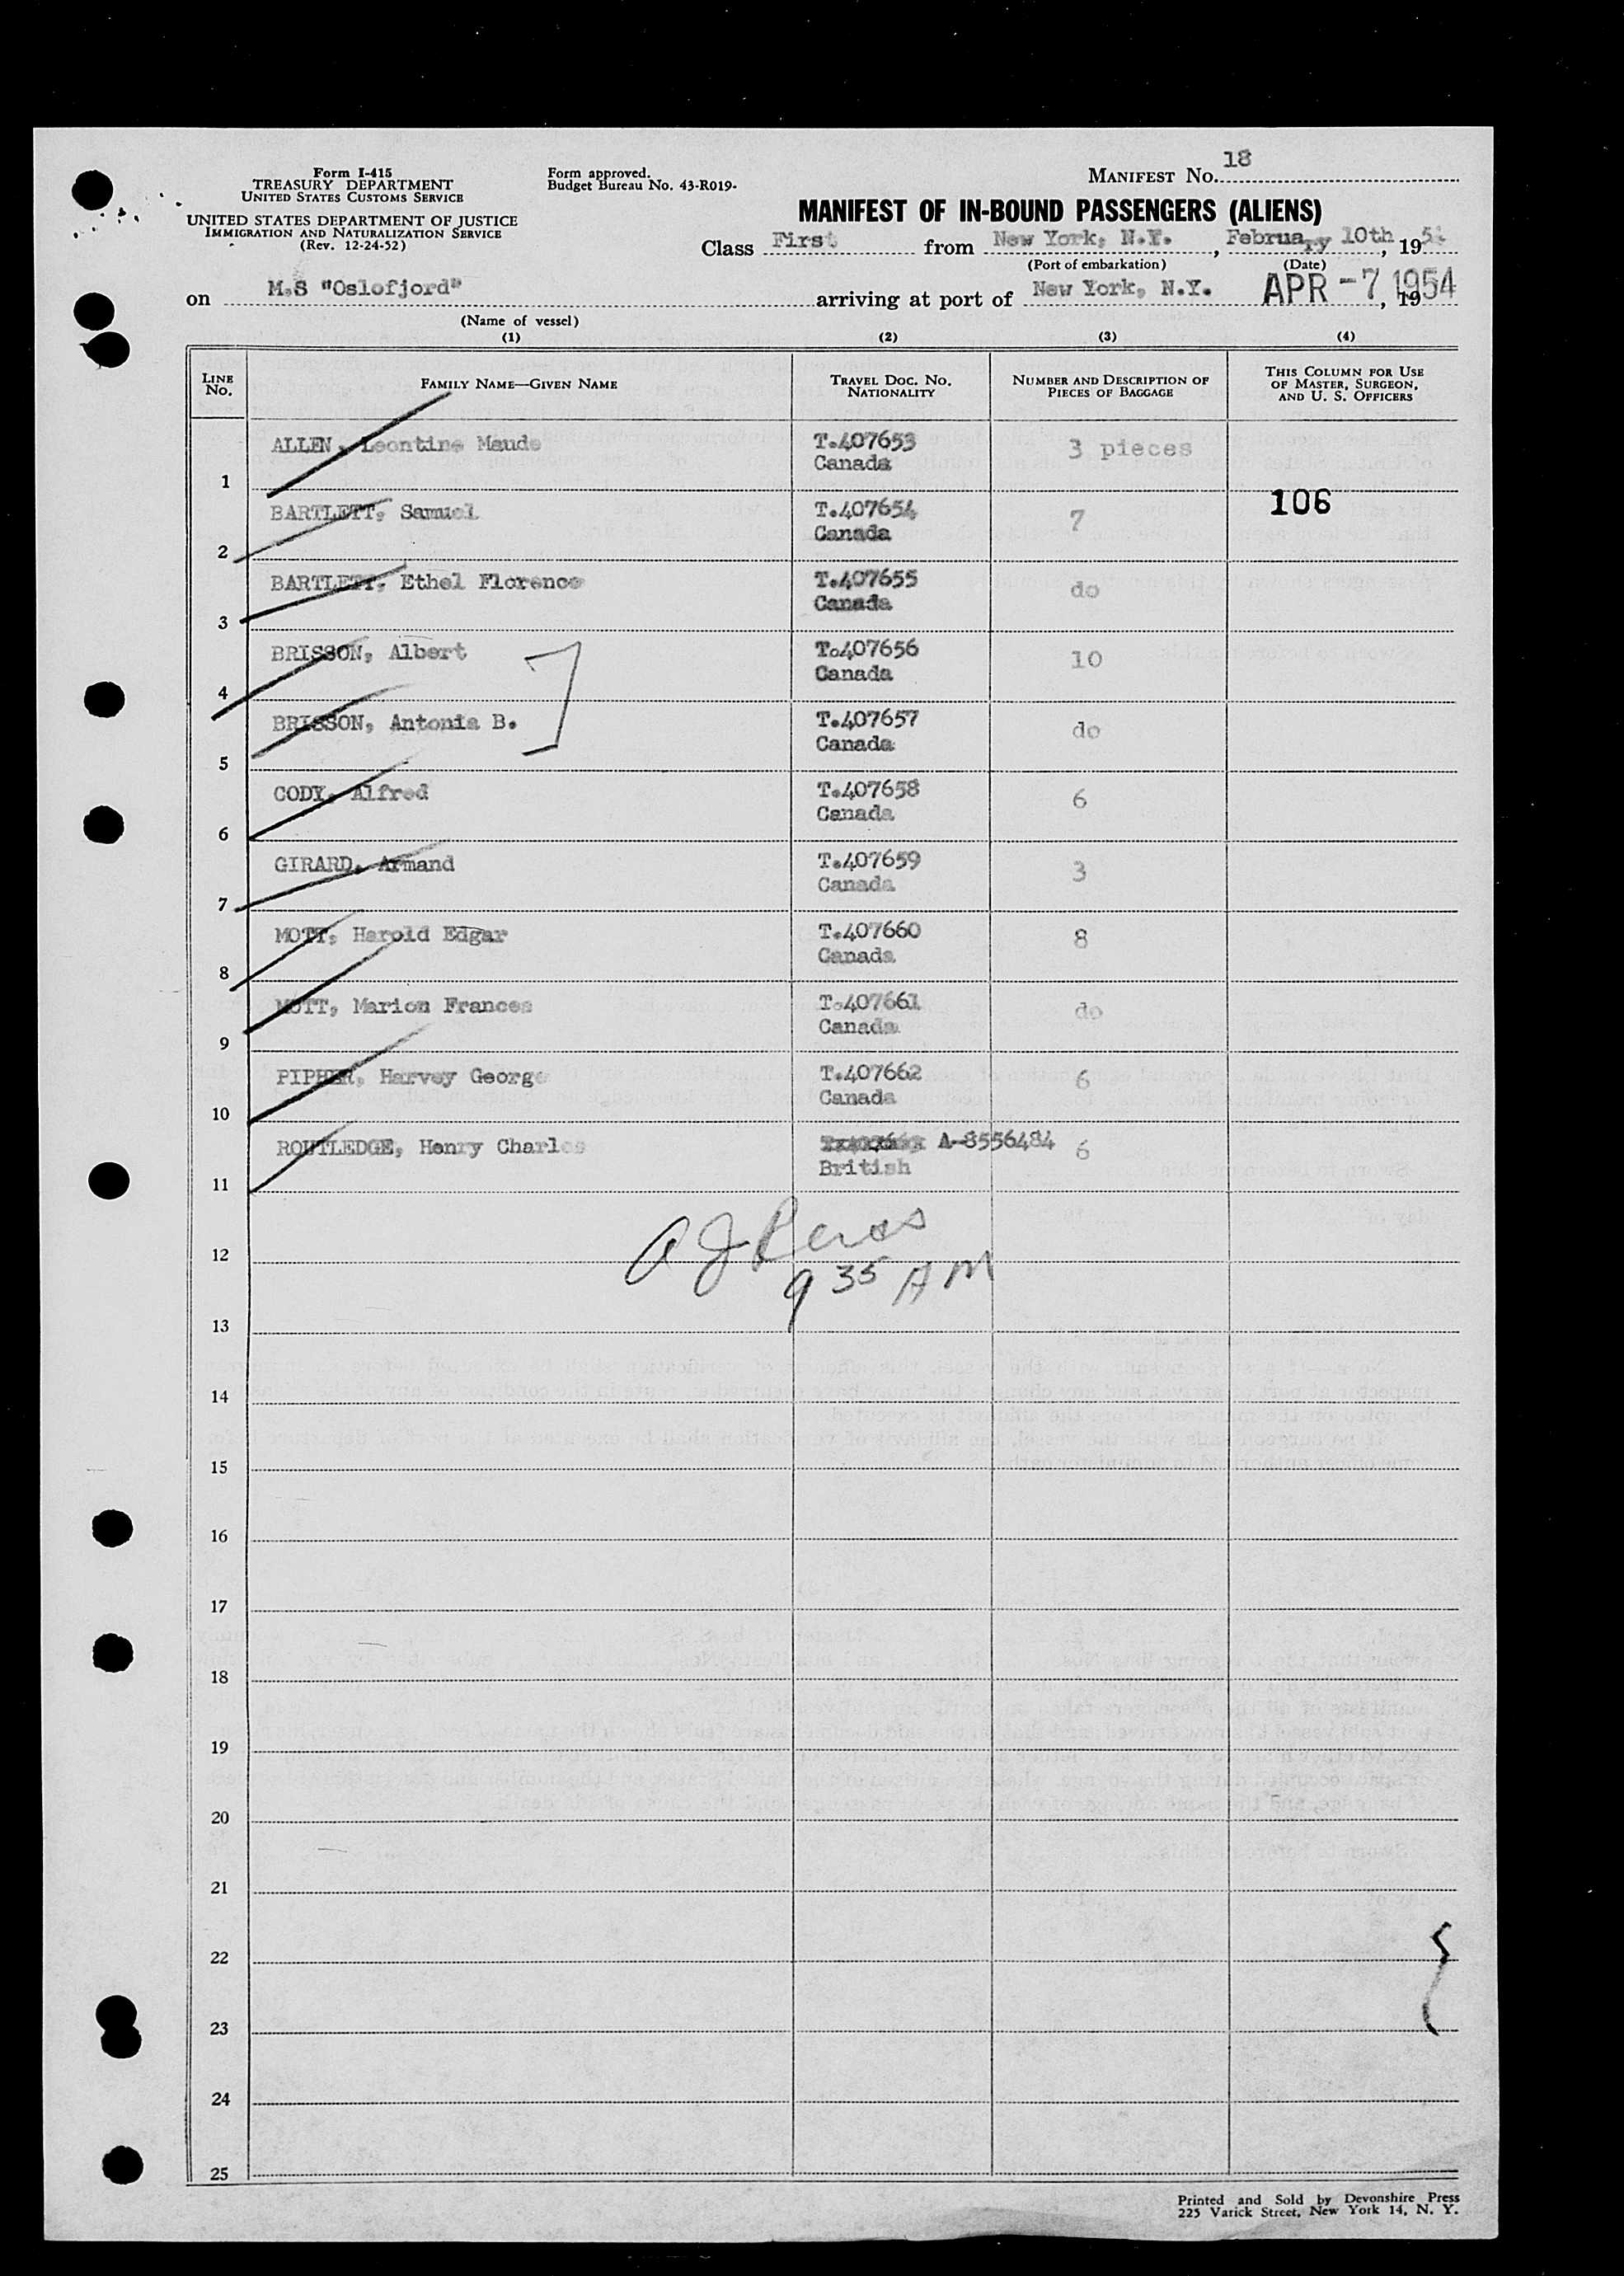 Form I-415
TREASURY DEPARTMENT
UNITED STATES CUSTOMS SERVICE
UNITED STATES DEPARTMENT OF JUSTICE
IMMIGRATION AND NATURALIZATION SERVICE
(Rev. 12-24-52)
Form approved.
Budget Bureau No. 43-R019-
MANIFEST No. 18
MANIFEST OF IN-BOUND PASSENGERS (ALIENS)
Class First from New York, N.Y. , February 10th , 1954
(Port of embarkation) (Date)
on M.S "Oslofjord" arriving at port of New York, N.Y. APR -7 1954 , 19
(Name of vessel)
(1) (2) (3) (4)
LINE No. FAMILY NAME—GIVEN NAME TRAVEL DOC. No. NATIONALITY NUMBER AND DESCRIPTION OF PIECES OF BAGGAGE THIS COLUMN FOR USE OF MASTER, SURGEON, AND U. S. OFFICERS
1 ALLEN, Leontine Maude T.407653 Canada 3 pieces
2 BARTLETT, Samuel T.407654 Canada 7 106
3 BARTLETT, Ethel Florence T.407655 Canada do
4 BRISSON, Albert To407656 Canada 10
5 BRISSON, Antonia B. T.407657 Canada do
6 CODY, Alfred T.407658 Canada 6
7 GIRARD, Armand T.407659 Canada 3
8 MOTT, Harold Edgar T.407660 Canada 8
9 MOTT, Marion Frances T.407661 Canada do
10 PIPHER, Harvey George T.407662 Canada 6
11 ROUTLEDGE, Henry Charles A-8556484 British 6
12
9 35 AM
13
14
15
16
17
18
19
20
21
22
23
24
25
Printed and Sold by Devonshire Press
225 Varick Street, New York 14, N. Y.